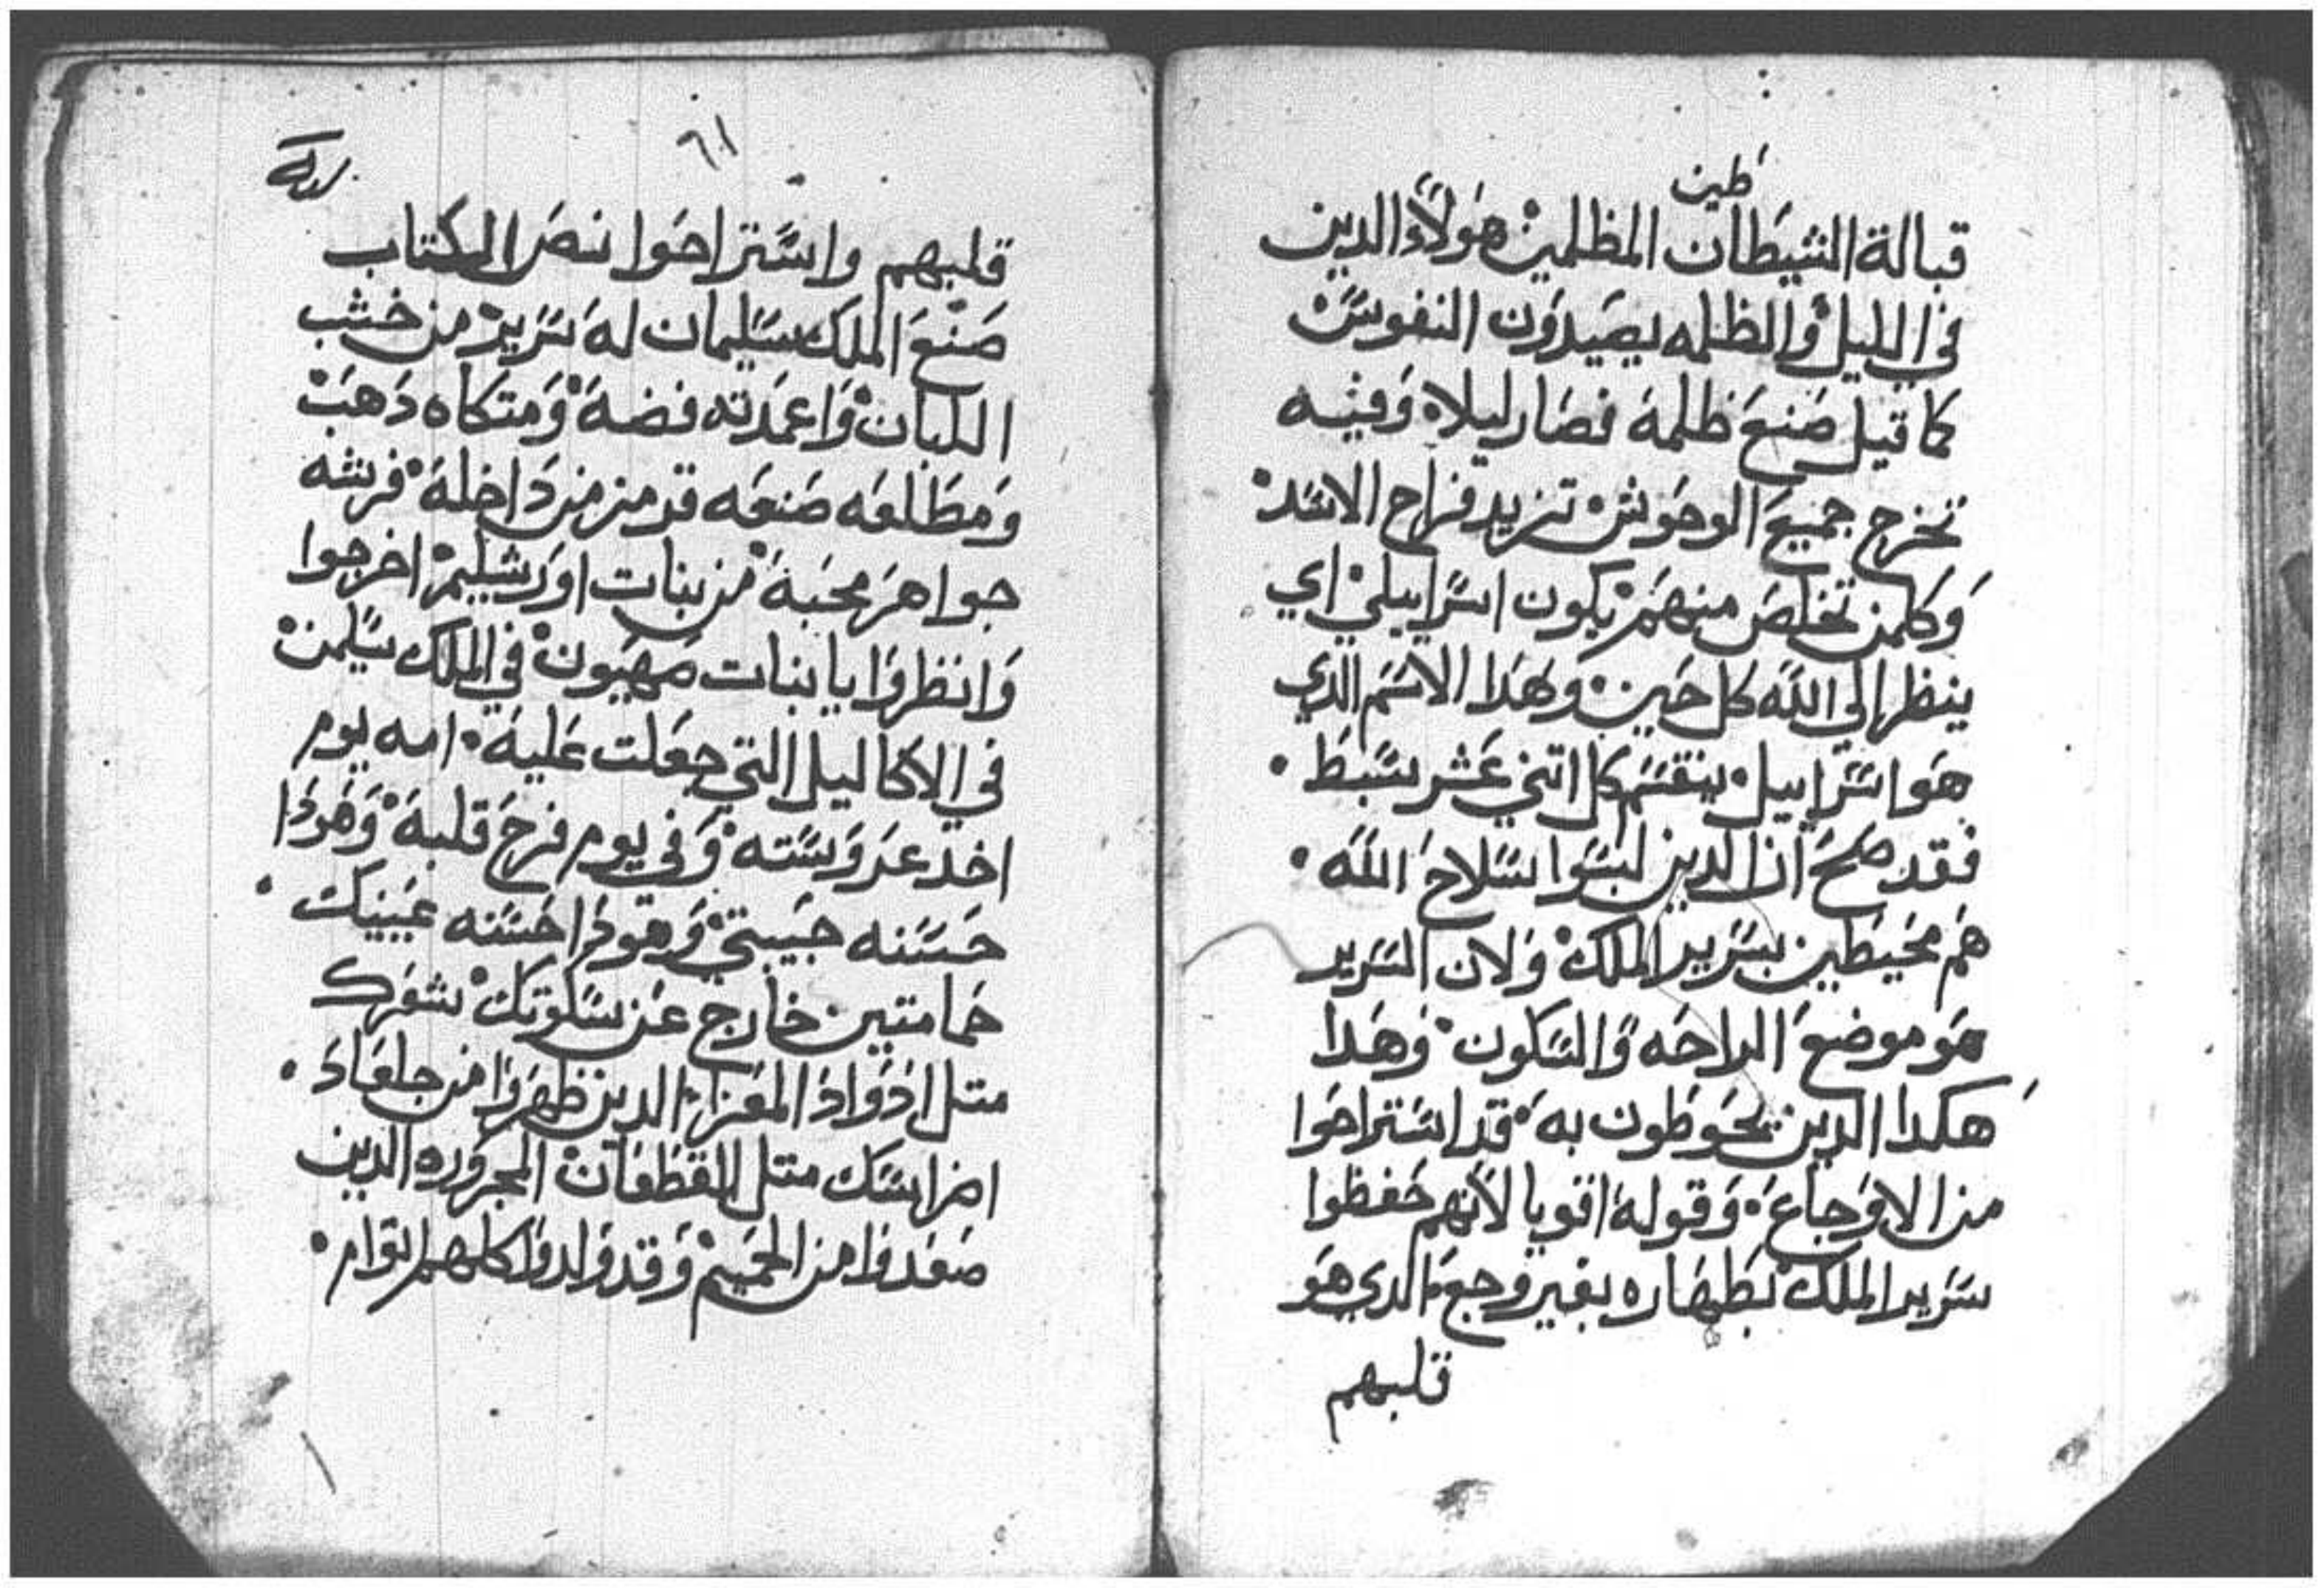 طين
قبالة الشيطان المظلمين هولاء الدين
في الليل والظلمه يصيدون النفوس
كما قيل صنع ظلمة فصار ليلا وفيه
تخرج جميع الوحوش تزيد فراح الاسد
وكلمن تخلص منهم يكون اسراييلي اي
ينظر الي الله كل حين وهدا الاسم الدي
هو اسراييل ينقسم كل اتني عشر سبط
فقد صح ان الدين لبسوا سلاح الله
هم محيطين بسرير الملك ولان السرير
هو موضع الراحه والسكون وهدا
هكدا الدين يحوطون به قد استراحوا
من الاوجاع وقوله اقويا لانهم حفظوا
سرير الملك بطهاره بغير وجع الدي هو
قلبهم
٦١
قلبهم واستراحوا نص الكتاب
صنع الملك سليمان له سرير من خشب
اللبان واعمدته فضة ومتكاه دهب
ومطلعه صنعه قرمز من داخلة فرشه
جواهر محبة من بنات اورشليم اخرجوا
وانظروا يا بنات صهيون في الملك سليمن
في الاكاليل التي جعلت علية امه يوم
اخد عروسته وفي يوم فرح قلبة وهودا
حسنه حبيبتي وهودا حسنه عينيك
حمامتين خارج عن سكوتك شعرك
متل ادواد المعزا الدين ظهروا من جلعاد
اضراسك متل القطعان المجروره الدين
صعدوا من الحميم وقد ولدوا كلهم اتوام